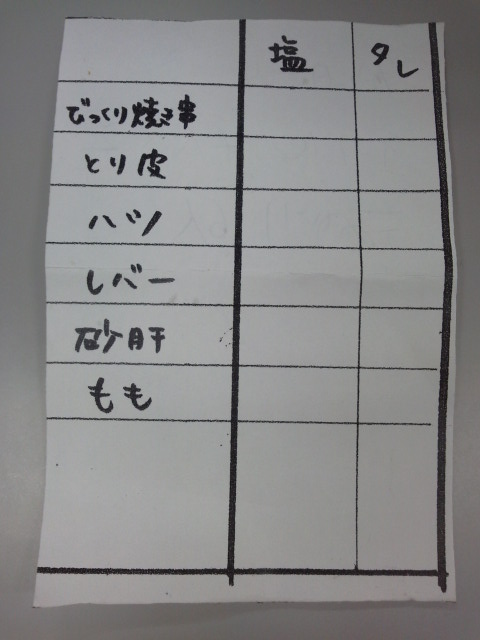 塩 タレ
びっくり焼き串
とり皮
ハツ
レバー
砂肝
もも